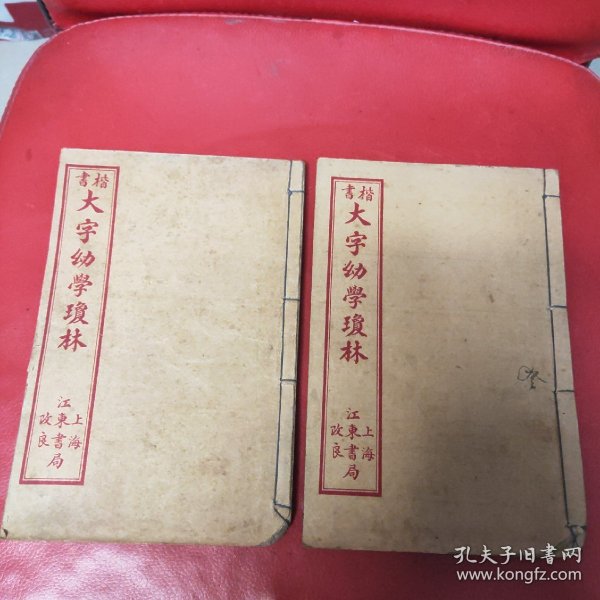 楷書
大字幼學瓊林
上海
江東書局
改良
楷書
大字幼學瓊林
上海
江東書局
改良
孔夫子旧書网
www.kongfz.com